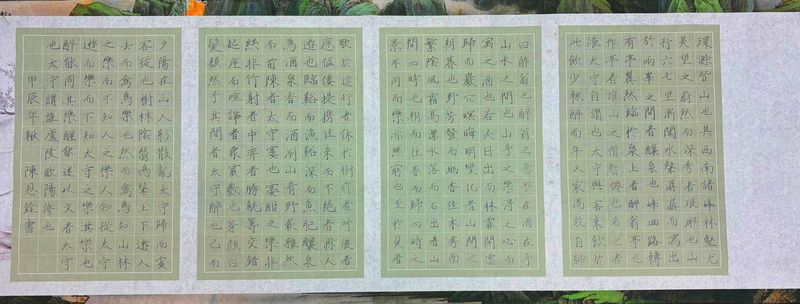 環滁皆山也其西南諸峰林壑尤
美望之蔚然而深秀者琅琊也山
行六七里漸聞水聲潺潺而瀉出
於兩峯之間者釀泉也峰回路轉
有亭翼然臨於泉上者醉翁亭也
作亭者誰山之僧智僊也名之者
誰太守自謂也太守與客來飲於
此飲少輒醉而年又最高故自號
曰醉翁也醉翁之意不在酒在乎
山水之間也山水之樂得之心而
寓之酒也若夫日出而林霏開雲
歸而巖穴暝晦明變化者山間之
朝暮也野芳發而幽香佳木秀而
繁陰風霜高潔水落而石出者山
間四時也朝而往暮而歸四時之
景不同而樂亦無窮也至於負者
歌於途行者休於樹前者呼後者
應傴僂提攜往來而不絕者滁人
遊也臨谿而漁谿深而魚肥釀泉
為酒泉香而酒洌山肴野蔌雜然
而前陳者太守宴也宴酣之樂非
絲非竹射者中弈者勝觥籌交錯
起座而喧譁者眾賓歡也蒼顏白
髮頹然乎其間者太守醉也已而
夕陽在山人影散亂太守歸而賓
客從也樹林陰翳鳴聲上下遊人
去而禽鳥樂也然而禽鳥知山林
之樂而不知人之樂人知從太守
遊而樂而不知太守之樂其樂也
醉能同其樂醒能述以文者太守
也太守謂誰廬陵歐陽修也
甲辰年秋 陳恩銓書